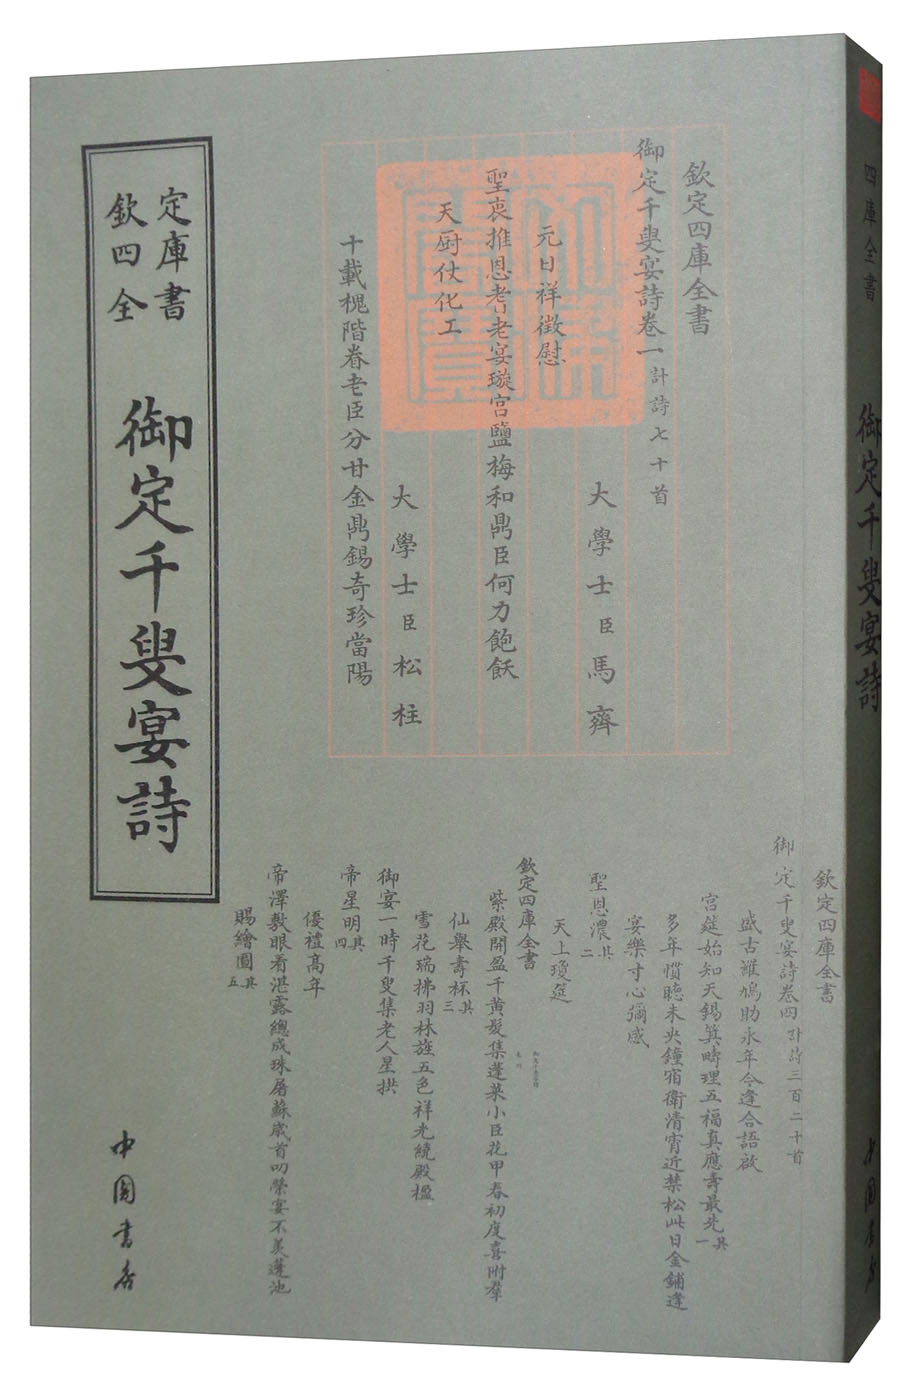 欽定
四庫
全書
御定千叟宴詩
中國書店
欽定四庫全書
御定千叟宴詩卷一 計詩七十首
大學士臣馬齊
元日祥徵慰
聖衷推恩耆老宴璇宮鹽梅和鼎臣何力飽飫
天厨仗化工
大學士臣松柱
十載槐階眷老臣分甘金鼎錫奇珍當陽
欽定四庫全書
御定千叟宴詩卷四 計詩三百二十首
盛古羅鳩助永年今逢合語啟
宮筵始知天錫箕疇理五福真應壽最先其一
多年慣聽未央鐘宿衛清宵近禁松此日金鋪逢
宴樂寸心彌感
聖恩濃其二
天上瓊筵
欽定四庫全書
紫殿開盈千黃髮集蓬萊小臣花甲春初度喜附羣
仙舉壽杯其三
雪花瑞拂羽林旌五色祥光繞殿楹
御宴一時千叟集老人星拱
帝星明其四
優禮高年
帝澤敷眼看湛露總成珠屠蘇歲首叨榮宴不羡蓬池
賜繪圖其五
四庫全書
御定千叟宴詩
中國書店